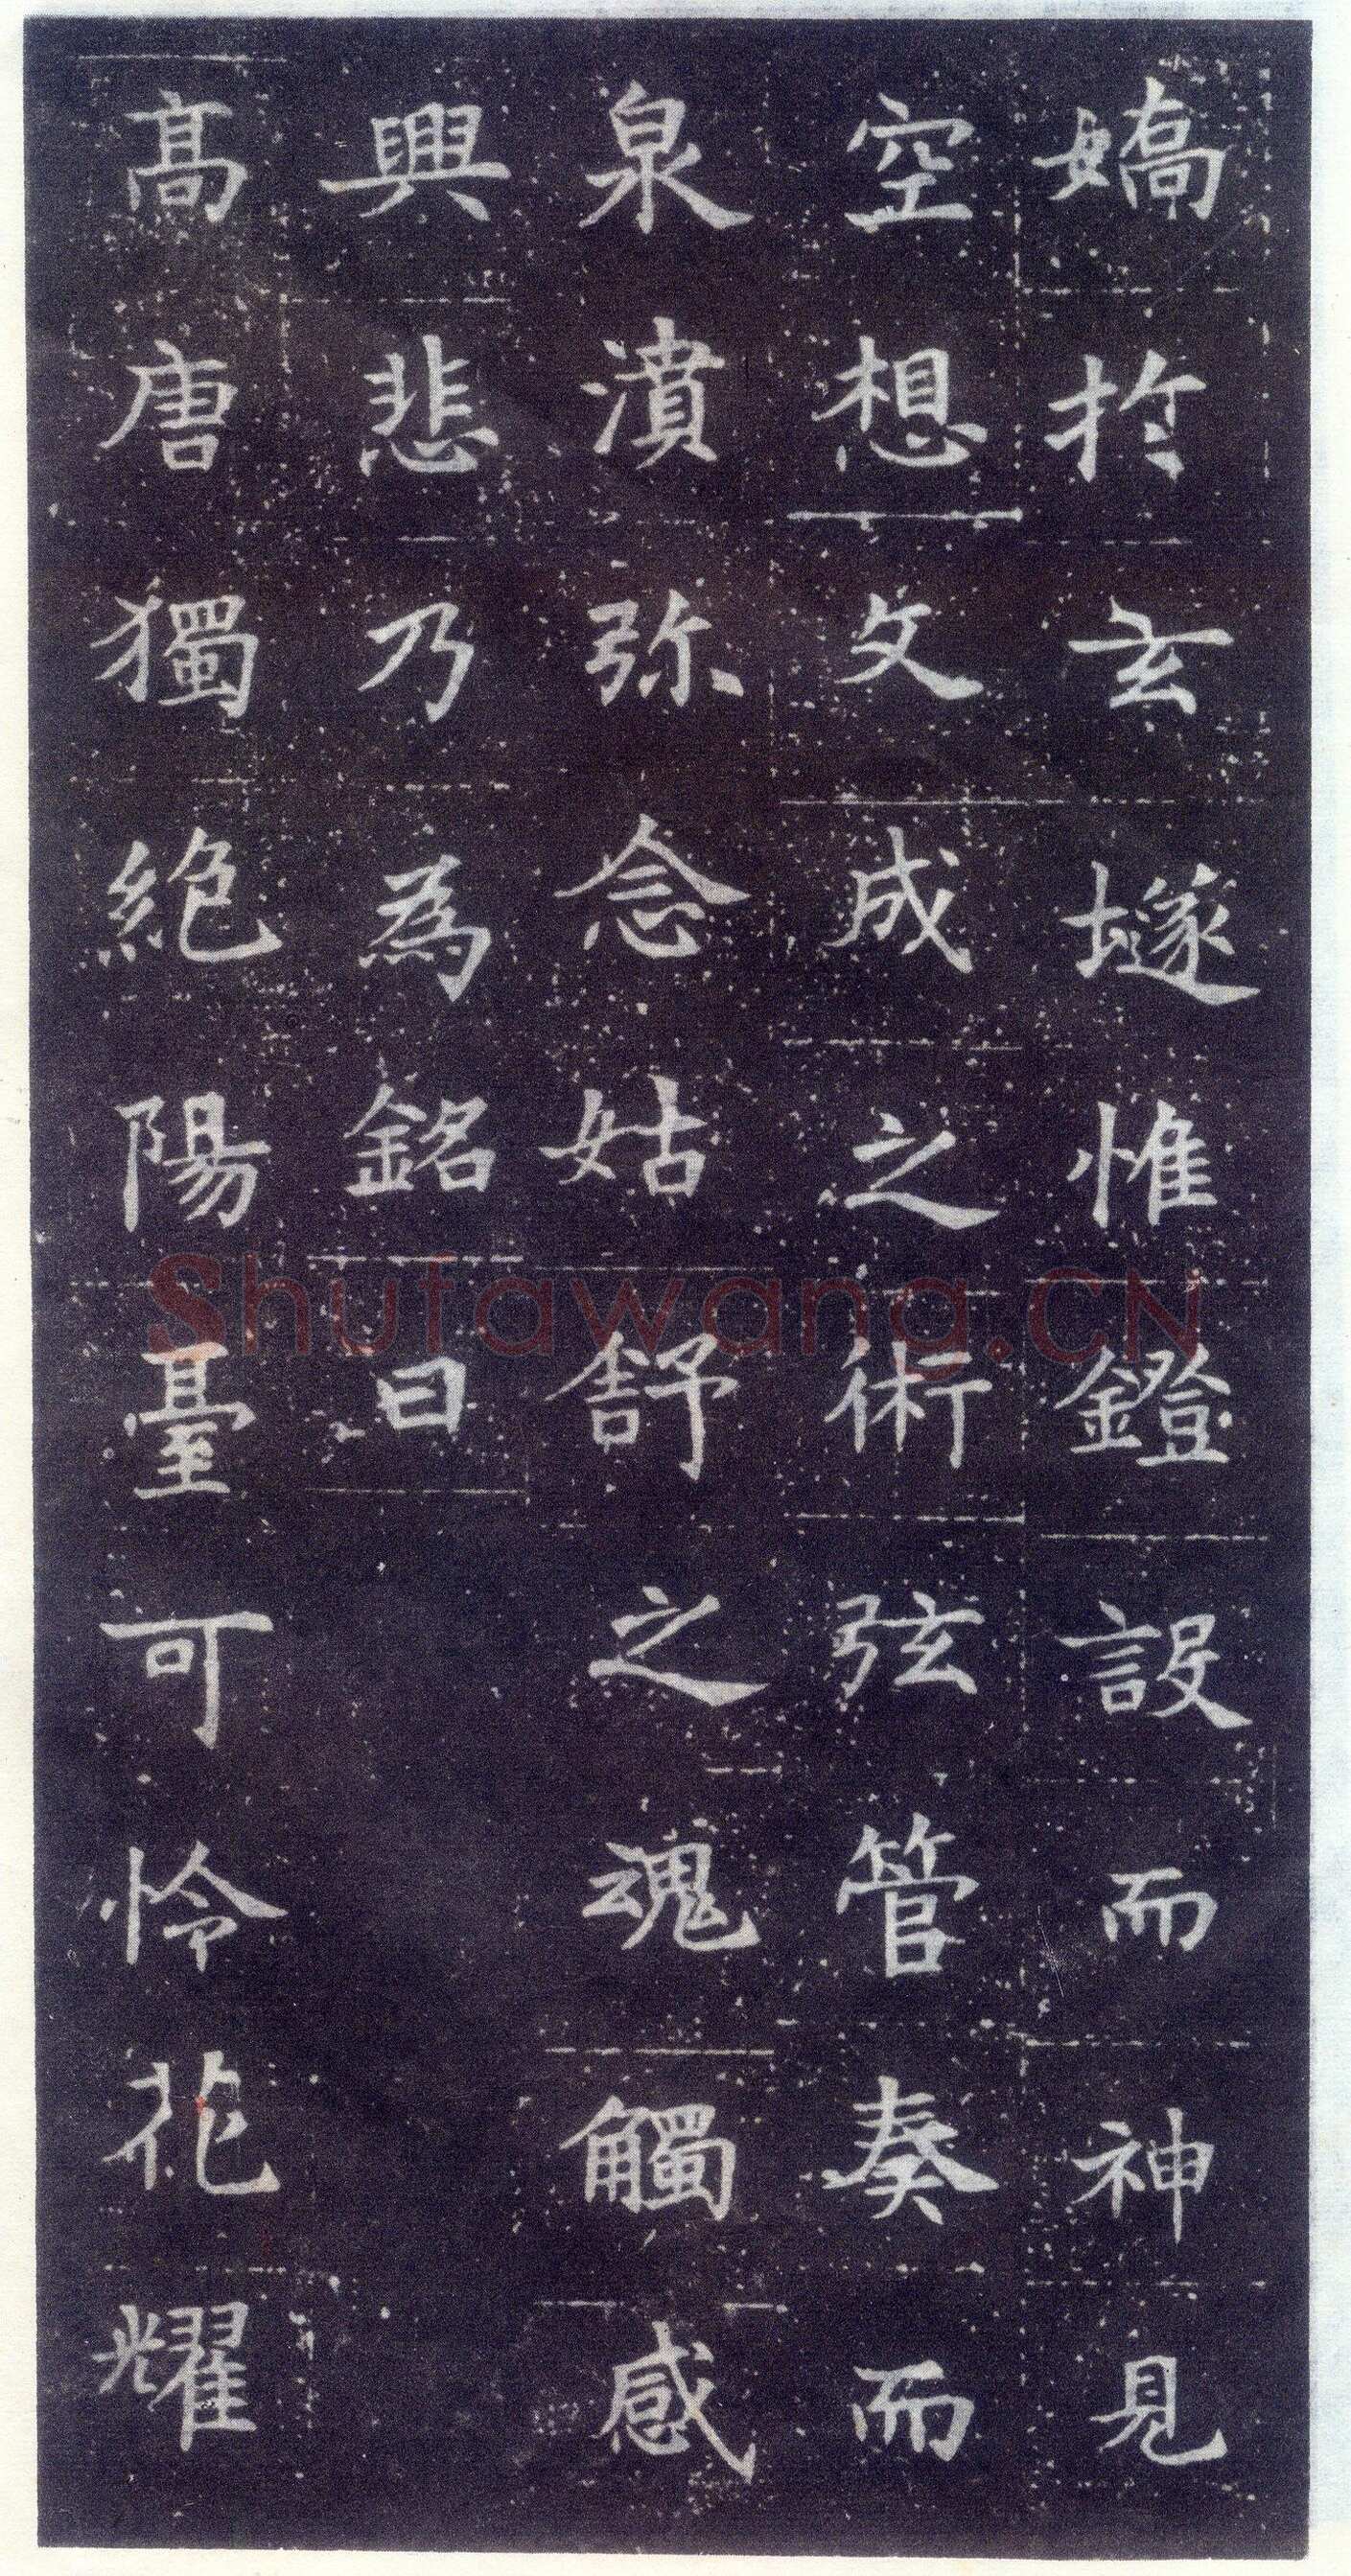 嬌於玄墜惟鐙設而神見
空想文成之術弦管奏而
泉濆弥念姑舒之魂觸感
興悲乃為銘曰
高唐獨絕陽臺可怜花耀
Shufawang.CN